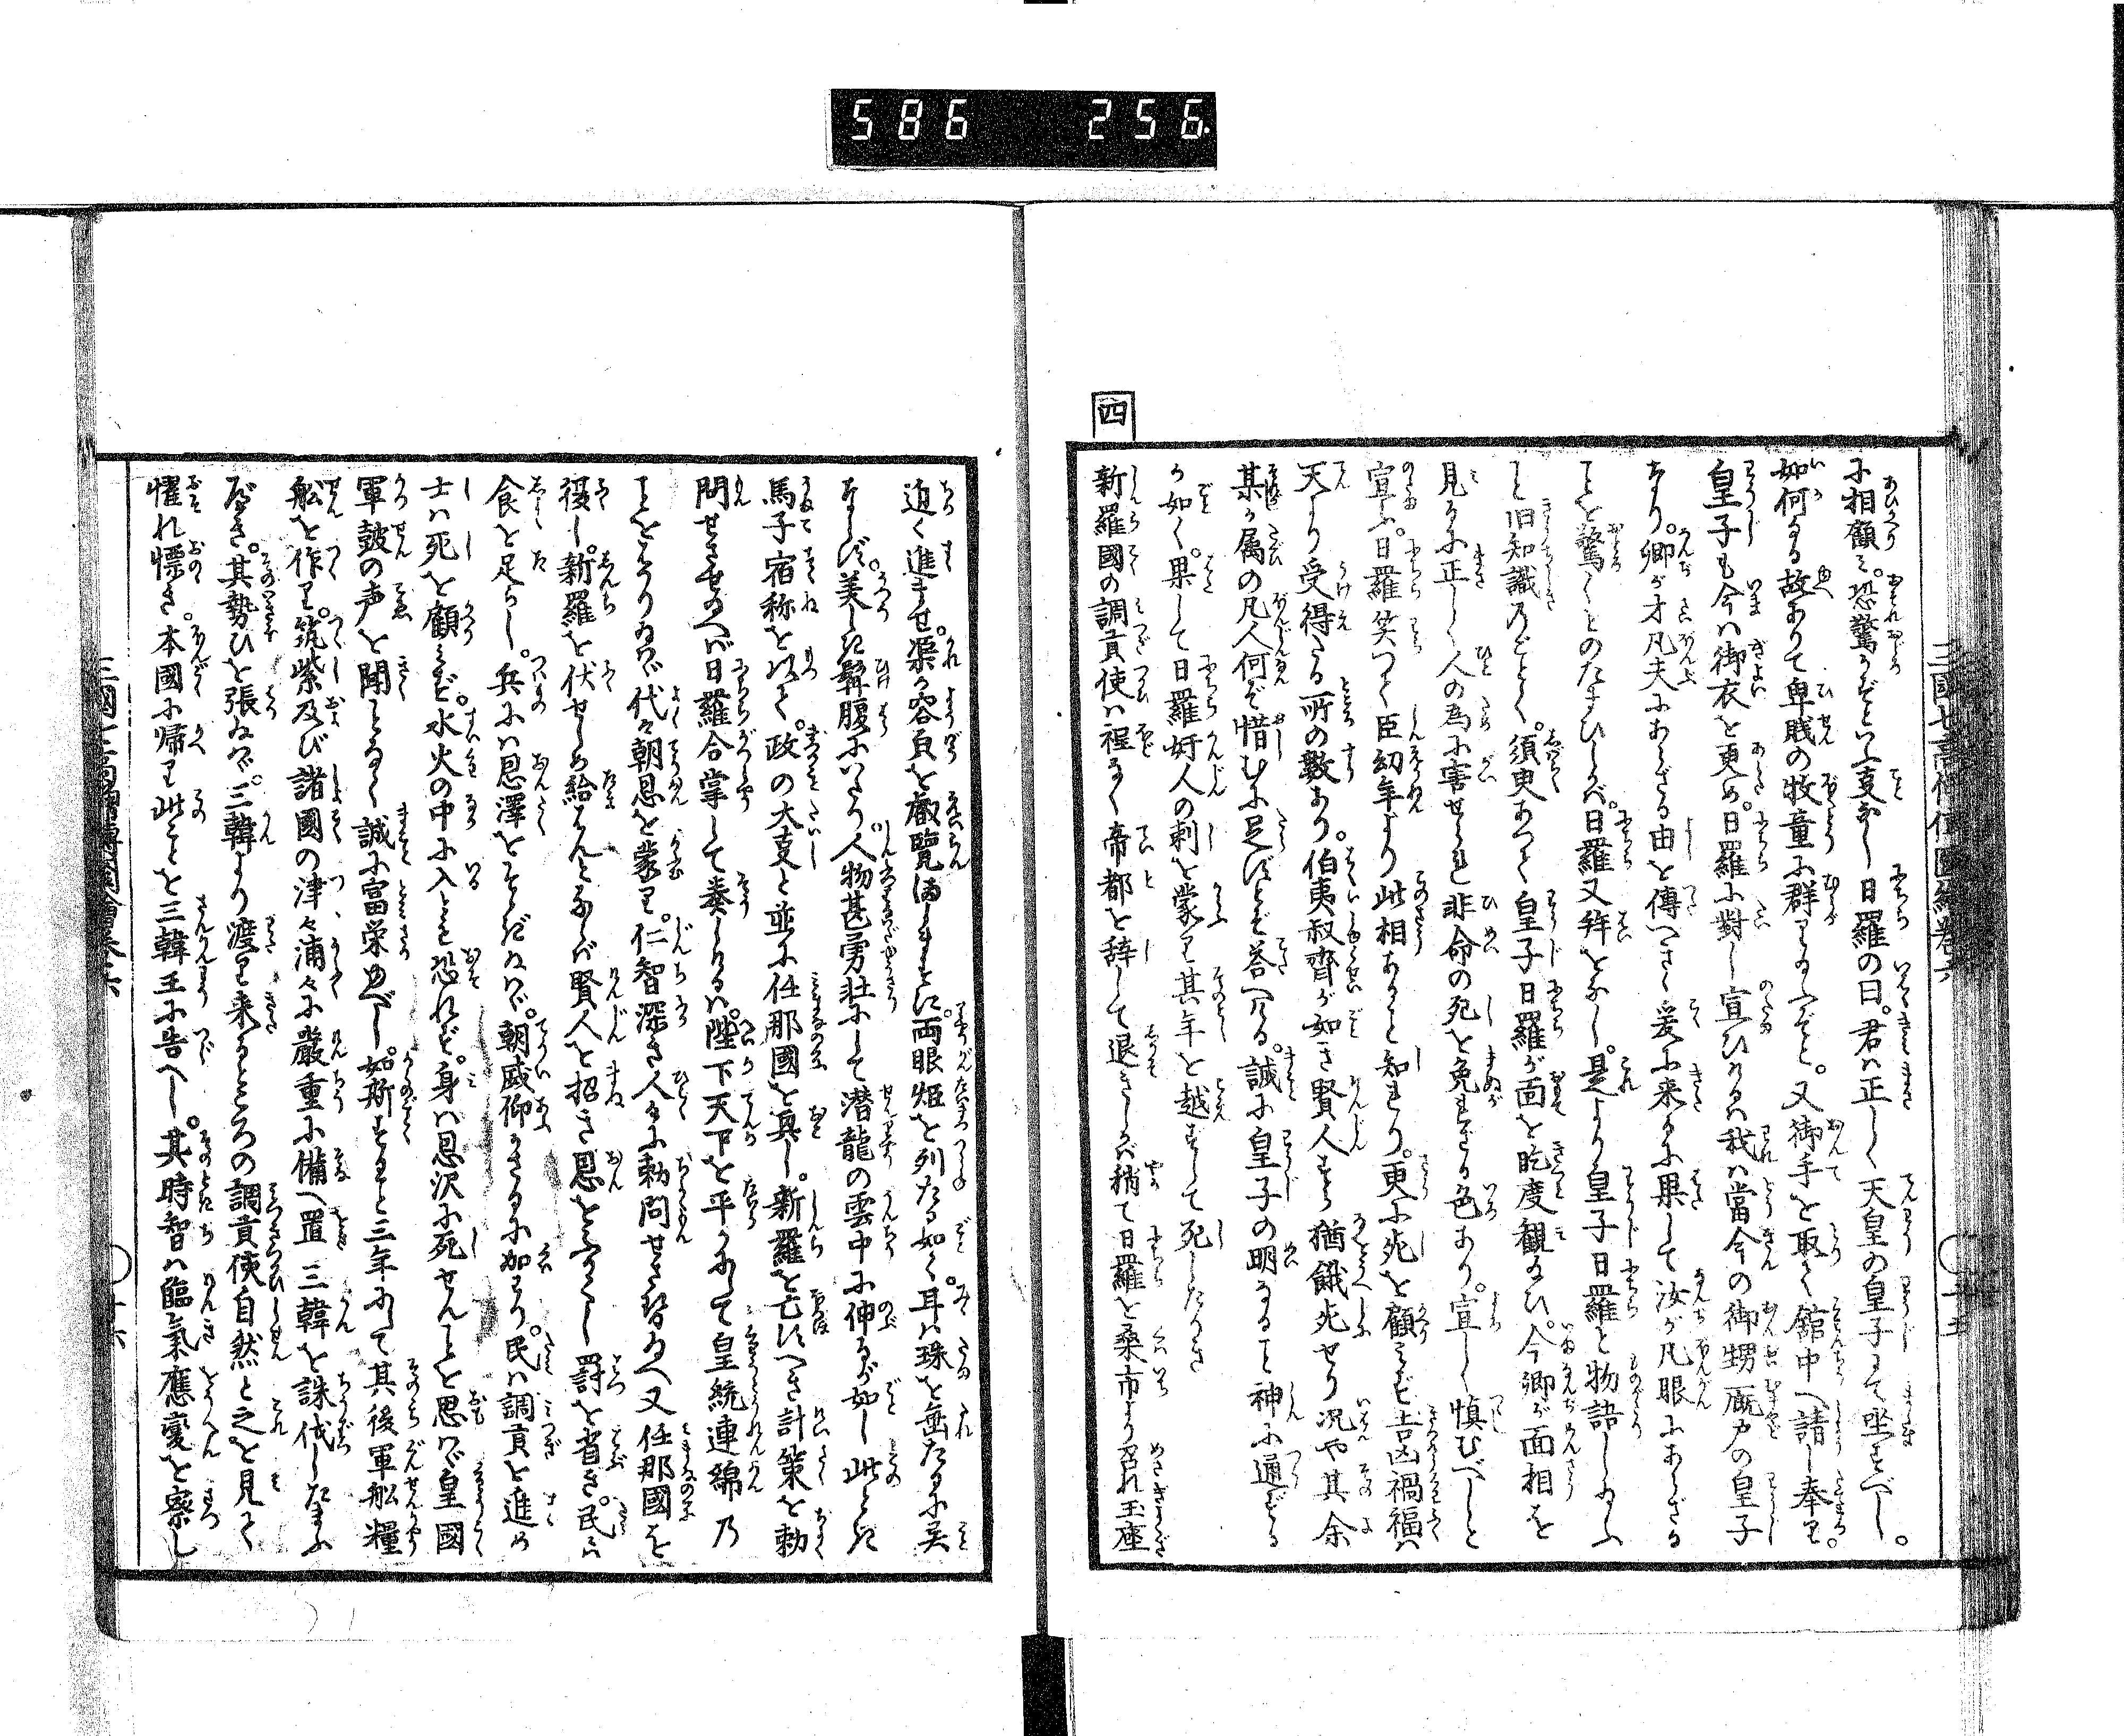 586 256.
三國七高僧傳圖繪巻六 〇十五
に相顧ミ。恐驚かずといふ叓なし日羅の曰。君ハ正しく天皇の皇子にて坐すべし。
如何なる故ありて卑賎の牧童に群り給ふぞと。又御手を取て舘中へ請し奉り。
皇子も今ハ御衣を更め。日羅に對し宣ひけるハ我ハ當今の御甥厩戸の皇子
なり。卿が才凡夫にあらざる由を傳へきく爰に来るに果して汝が凡眼にあらざる
ことを驚くとのたまひしかバ。日羅又拝をなし。是より皇子日羅と物語し給ふ
こと旧知識のごとく。須臾あつて皇子日羅が面を眈度観給ひ。今卿が面相を
見るに正しく人の為に害せられ非命の死を免れざる色あり。宜しく慎むべしと
宣ふ。日羅笑つて臣幼年より此相あることを知れり。更に死を顧ミず吉凶禍福ハ
天より受得たる所の數あり。伯夷叔齊が如き賢人すら猶餓死せり况や其余
某が属の凡人何ぞ惜むに足ずとぞ答へける。誠に皇子の明なること神に通ずる
が如く。果して日羅奸人の刺を蒙り其年を越ずして死したりき
四
新羅國の調貢使ハ程なく帝都を辞して退きしかバ稍て日羅を桑市より召れ玉座
近く進ませ。渠が容貞を叡覧ましますに。両眼姫を列たる如く。耳ハ珠を垂たるに異
ならず。美しき髯腹にいたり人物甚勇壮にして潜龍の雲中に伸るが如し此とき
馬子宿称を以て。政の大叓と並に任那國を興し。新羅を亡すべき計策を勅
問せさせ給へバ日羅合掌して奏しけるハ。陛下天下を平かにして皇統連綿乃
ことをはかり給ハヾ代々朝恩を蒙り。仁智深き人々に勅問せさせ給へ又任那國を
復し。新羅を伏せしめ給ハんとならバ賢人を招き恩をあつくし罸を省き。民ミハ
食を足らし。兵にハ恩澤をそゝぎ給ハヾ。朝威仰がざるに加り。民ハ調貢を進め
士ハ死を顧ミず。水火の中に入るも恐れず。身ハ恩沢に死せんことを思ハヾ皇國
軍鼓の声を聞ことなく誠に富栄ゆべし。如斯すること三年にして其後軍舩糧
舩を作り。筑紫及び諸國の津々浦々に嚴重に備へ置三韓を誅伐したまふ
べき。其勢ひを張給ハヾ。三韓より渡り来るところの調貢使自然と之を見て
懼れ慄き。本國に帰り此ことを三韓王に告べし。其時智ハ臨氣應變を察し
三國七高僧傳圖繪巻六 〇十六